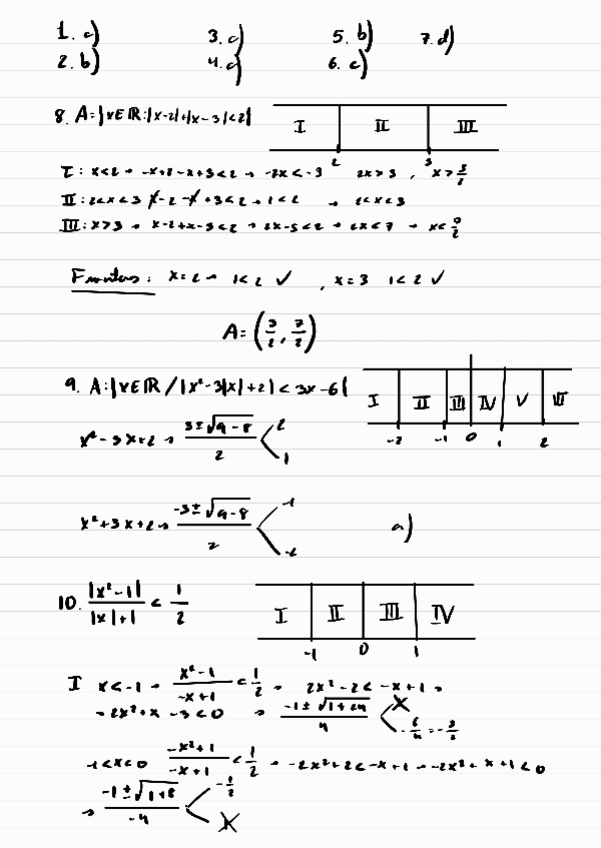 1. a) 3. c) 5. b) 7. d)
2. b) 4. c) 6. c)
8. A={x∈ℝ:|x-2|+|x-3|<2} I II III
2 3
I: x<2 → -x+2-x+3<2 → -2x<-3 2x>3, x>3/2
II: 2<x<3 x-2-x+3<2 → 1<2 → 2<x<3
III: x>3 → x-2+x-3<2 → 2x-5<2 → 2x<7 → x<7/2
Fronteras: x=2 → 1<2 ✓, x=3 1<2 ✓
A=(3/2, 7/2)
9. A:{x∈ℝ/|x²-3|x|+2|<3x-6} I II III IV V VI
-2 -1 0 1 2
x²-3x+2 → (3±√(9-8))/2 < 2
1
x²+3x+2 → (-3±√(9-8))/2 < -1
-2
a)
10. |x²-1|/(|x|+1) < 1/2 I II III IV
-1 0 1
I x<-1 → (x²-1)/(-x+1) < 1/2 → 2x²-2<-x+1 →
→ 2x²+x-3<0 → (-1±√(1+24))/4 < X
-6/4=-3/2
-1<x<0 (-x²+1)/(-x+1) < 1/2 → -2x²+2<-x+1 → -2x²+x+1<0
→ (-1±√(1+8))/-4 < -1/2